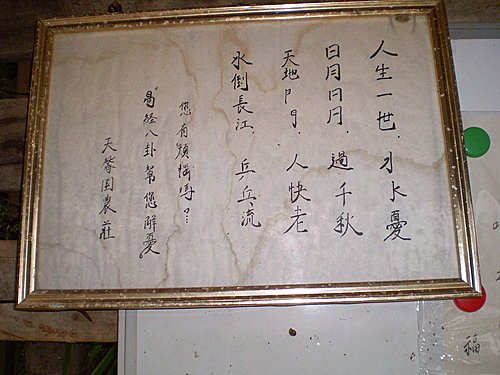 人生一世，水憂
日月月，過千秋
天地卩，人快老
水倒長江，乒乓流
您有煩惱嗎？…
易經八卦您解憂。
天園農莊
福